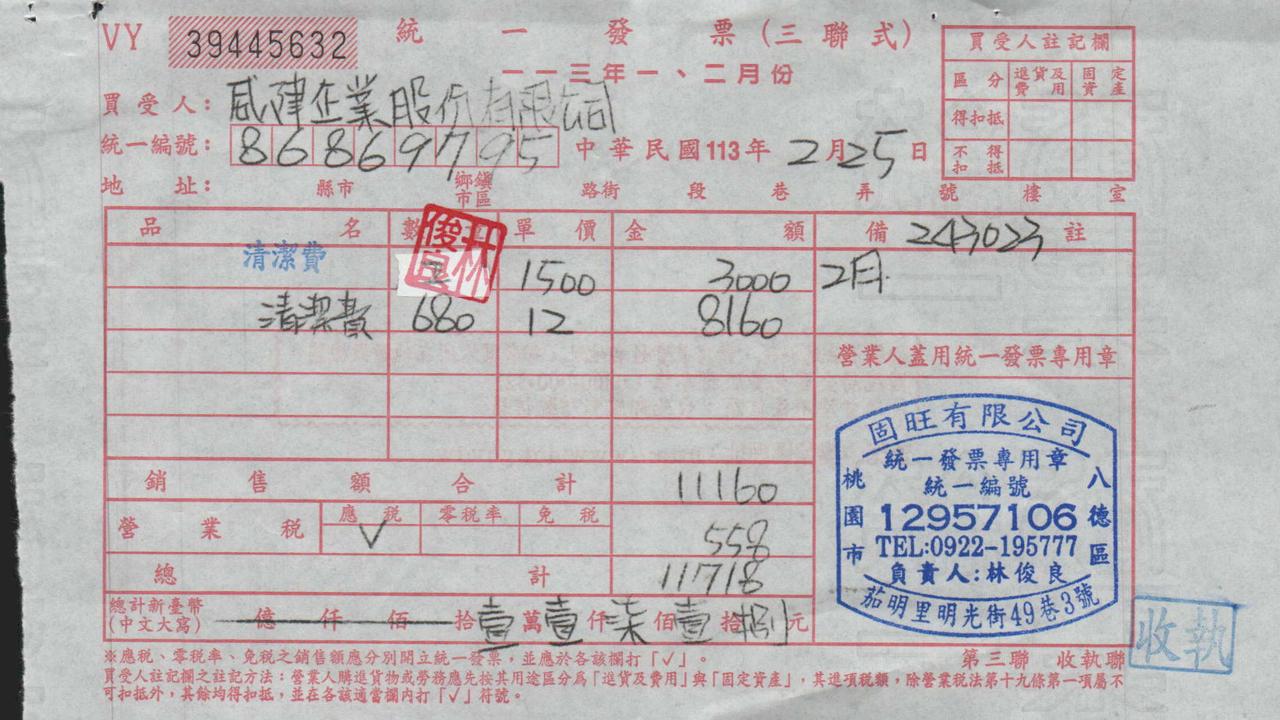 VY 39445632 統一發票(三聯式)
一一三年一、二月份
買受人註記欄
區分 進貨及費用 固定資產
得扣抵
不得扣抵
買受人: 企業股份有限公司
統一編號: 86869795 中華民國113年2月25日
地址: 縣市 鄉鎮市區 路街 段 巷 弄 號 樓 室
品名 數 單價 金額 備註 243023
清潔費 1500 3000 2月
清潔費 680 12 8160
營業人蓋用統一發票專用章
銷售額合計 11160
營業稅 應稅 ✓ 零稅率 免稅 558
總計 11718
總計新臺幣(中文大寫) 億仟佰拾壹萬壹仟柒佰壹拾捌元
固旺有限公司
統一發票專用章
統一編號
12957106
TEL:0922-195777
負責人:林俊良
桃園市 八德區
茄明里明光街49巷3號
收執
※應稅、零稅率、免稅之銷售額應分別開立統一發票,並應於各該欄打「✓」。
第三聯 收執聯
買受人註記欄之註記方法:營業人購進貨物或勞務應先按其用途區分為「進貨及費用」與「固定資產」,其進項稅額,除營業稅法第十九條第一項屬不
可扣抵外,其餘均得扣抵,並在各該適當欄內打「✓」符號。